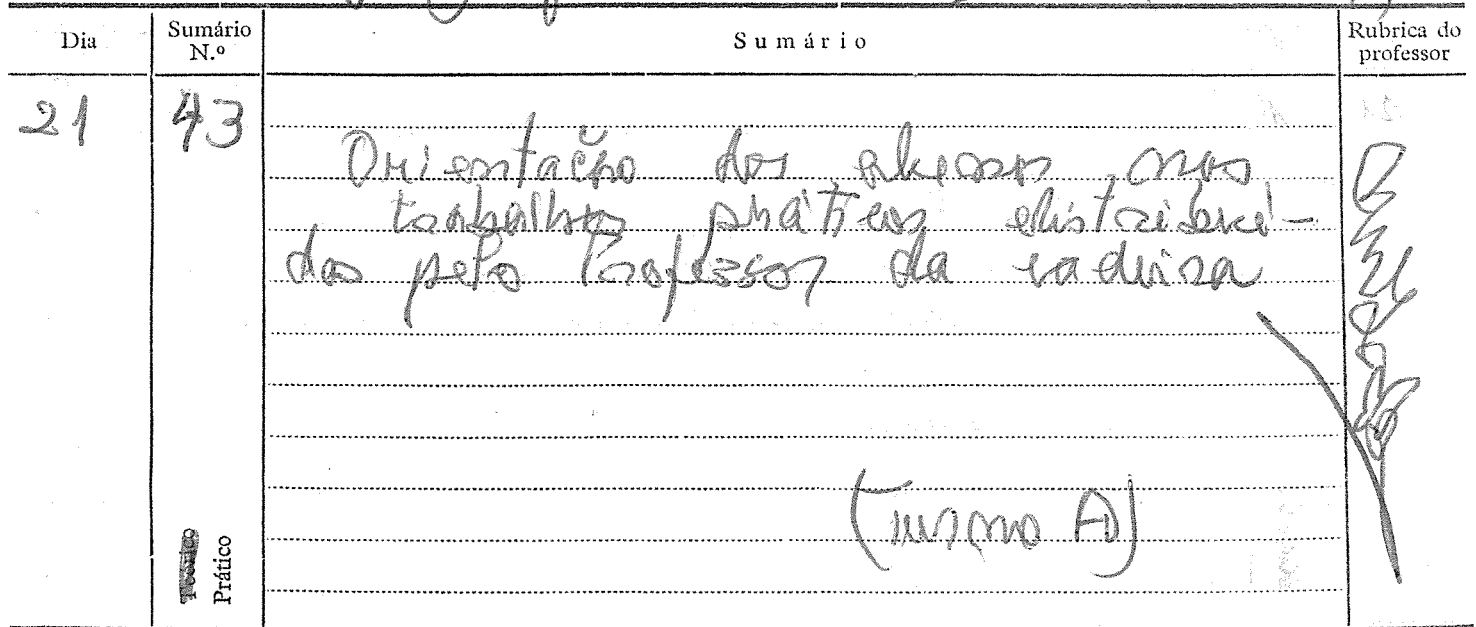 Dia
Sumário N.º
Sumário
Rubrica do professor
21
43
Orientação dos alunos nos
trabalhos práticos distribuí-
dos pelo Professor da cadeira
(Turma A)
Teórico
Prático